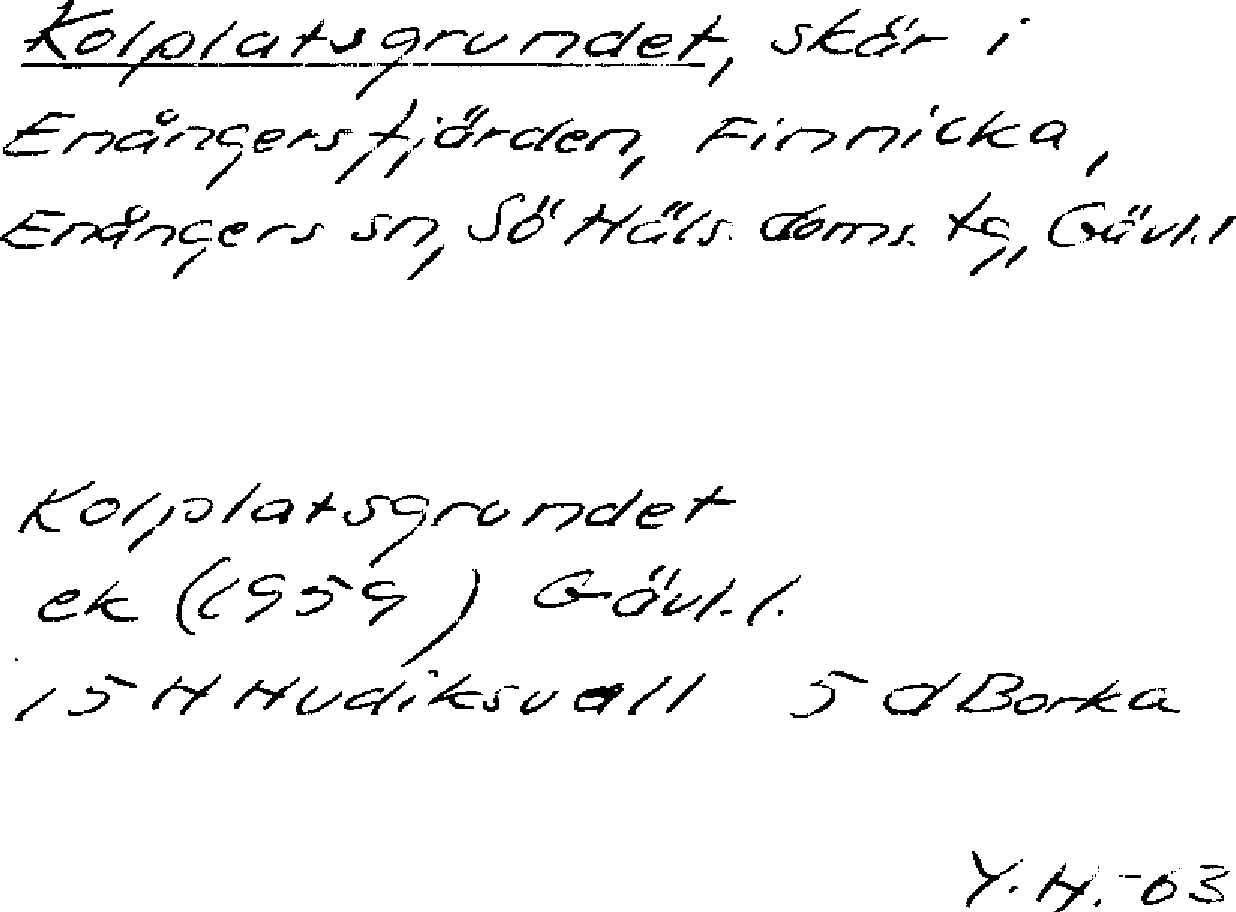 Kolplatsgrundet, skär i
Enångersfjärden, Finnicka,
Enångers sn, Sö Häls. doms. tg, Gävl.l
Kolplatsgrundet
ek (1959) Gävl.l.
15 H Hudiksvall 5 d Borka
Y.H.-63